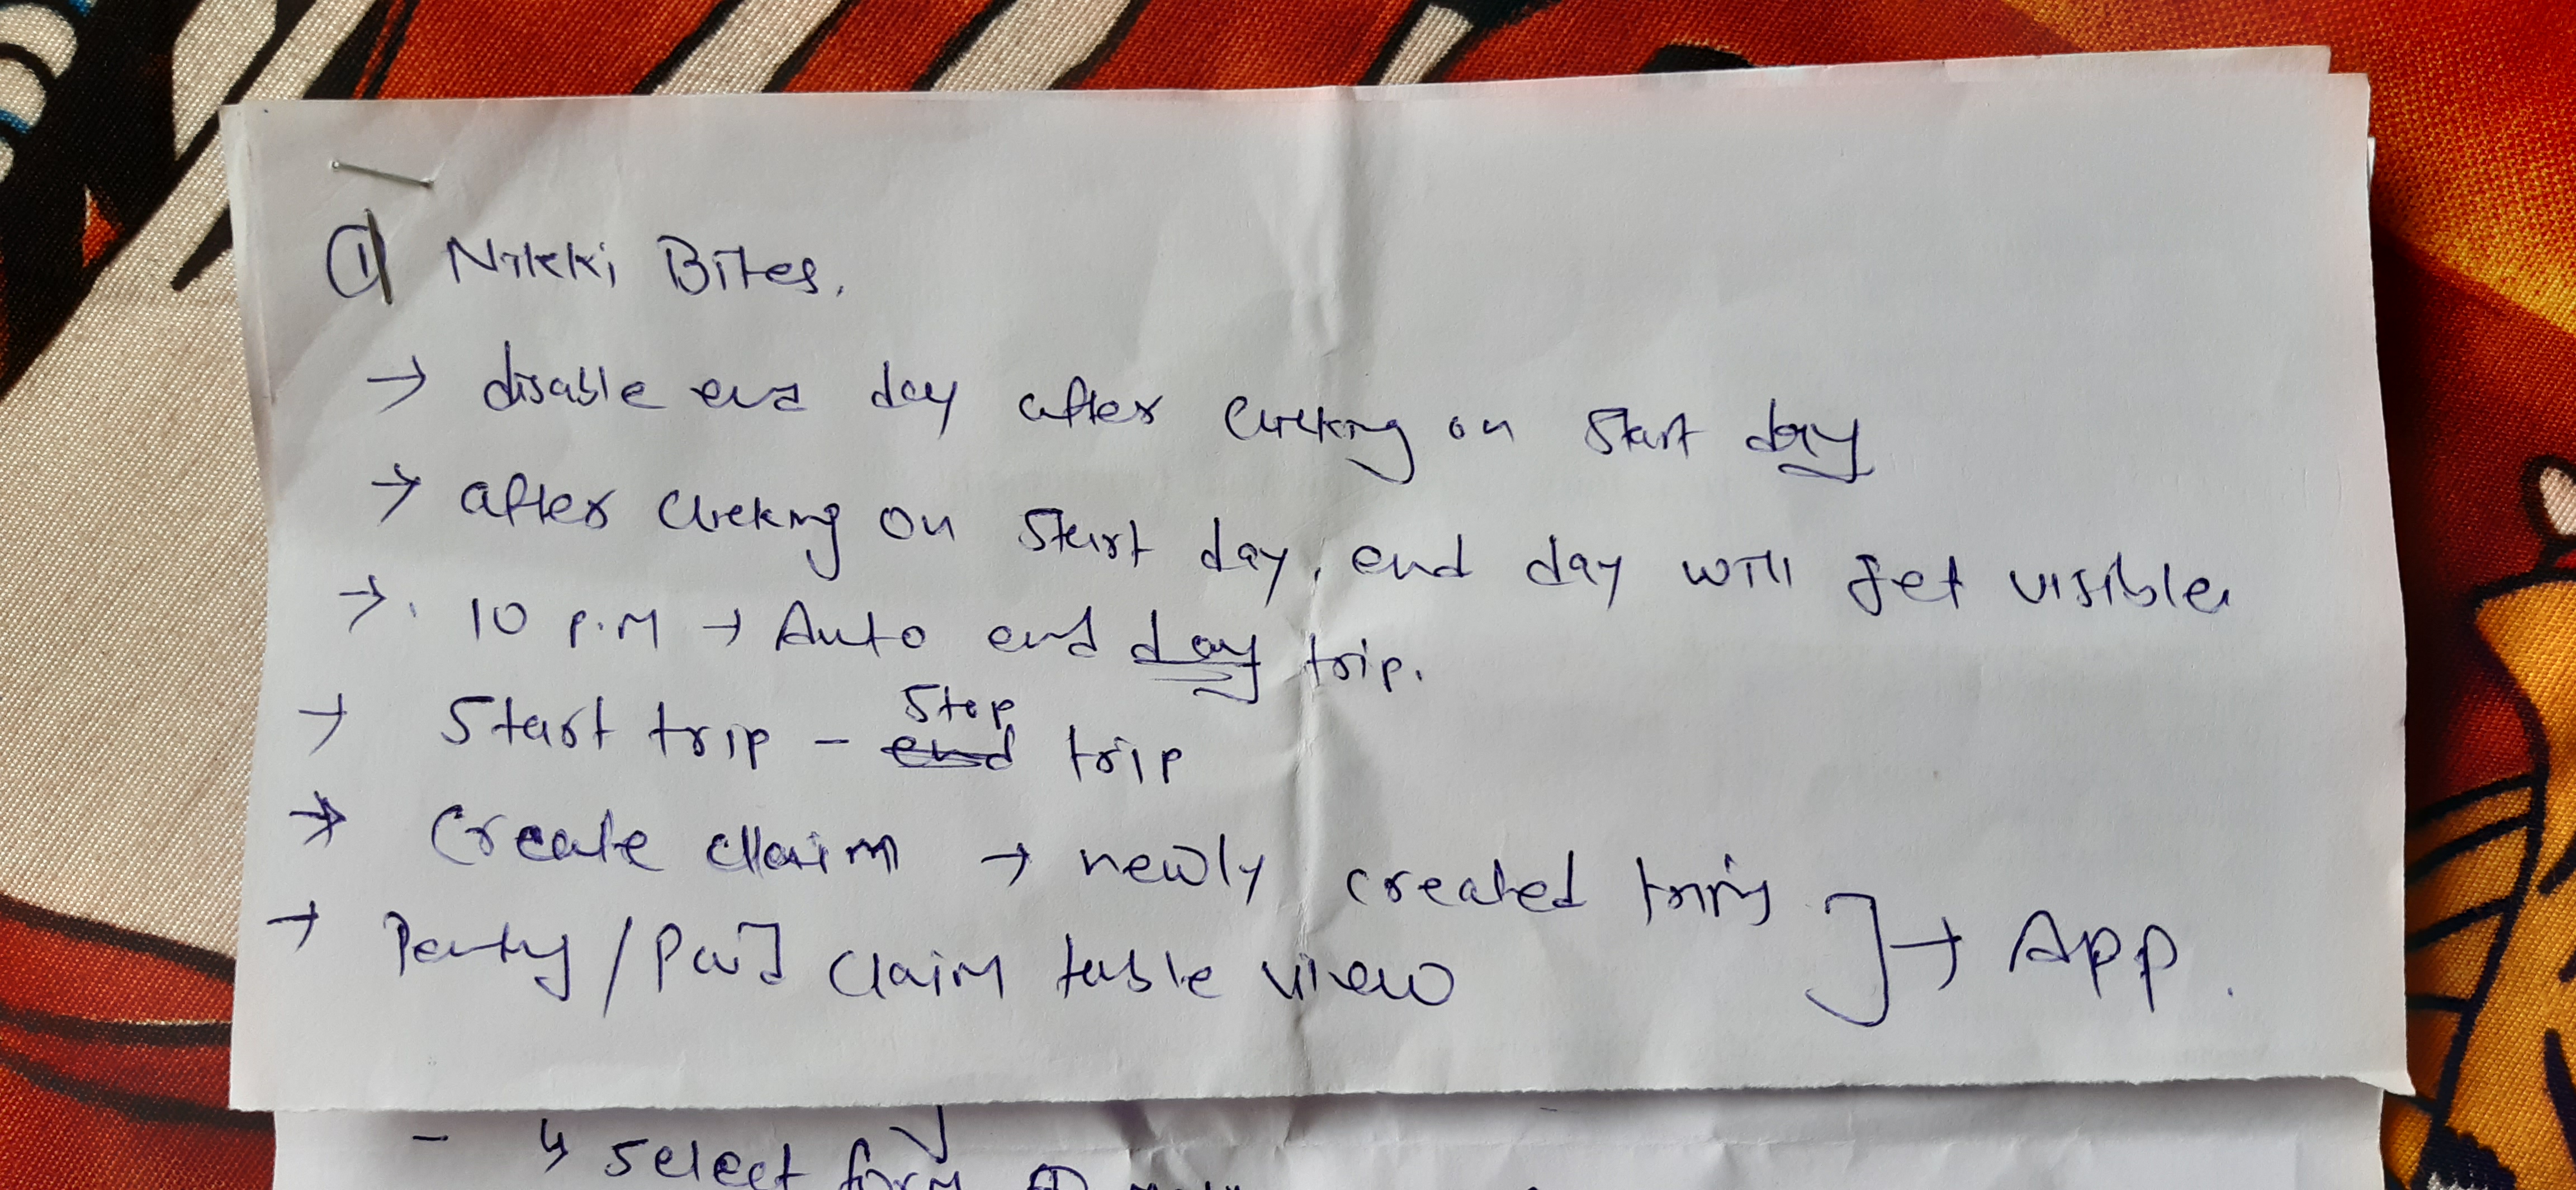 ① Niteki Bites.
→ disable end day after clicking on start day
→ after clicking on start day, end day will get visible
→ 10 p.m → Auto end day trip.
→ Start trip - Stop trip
→ Create claim → newly created trip
→ / Paid claim table view ] → APP.
- 4 select form